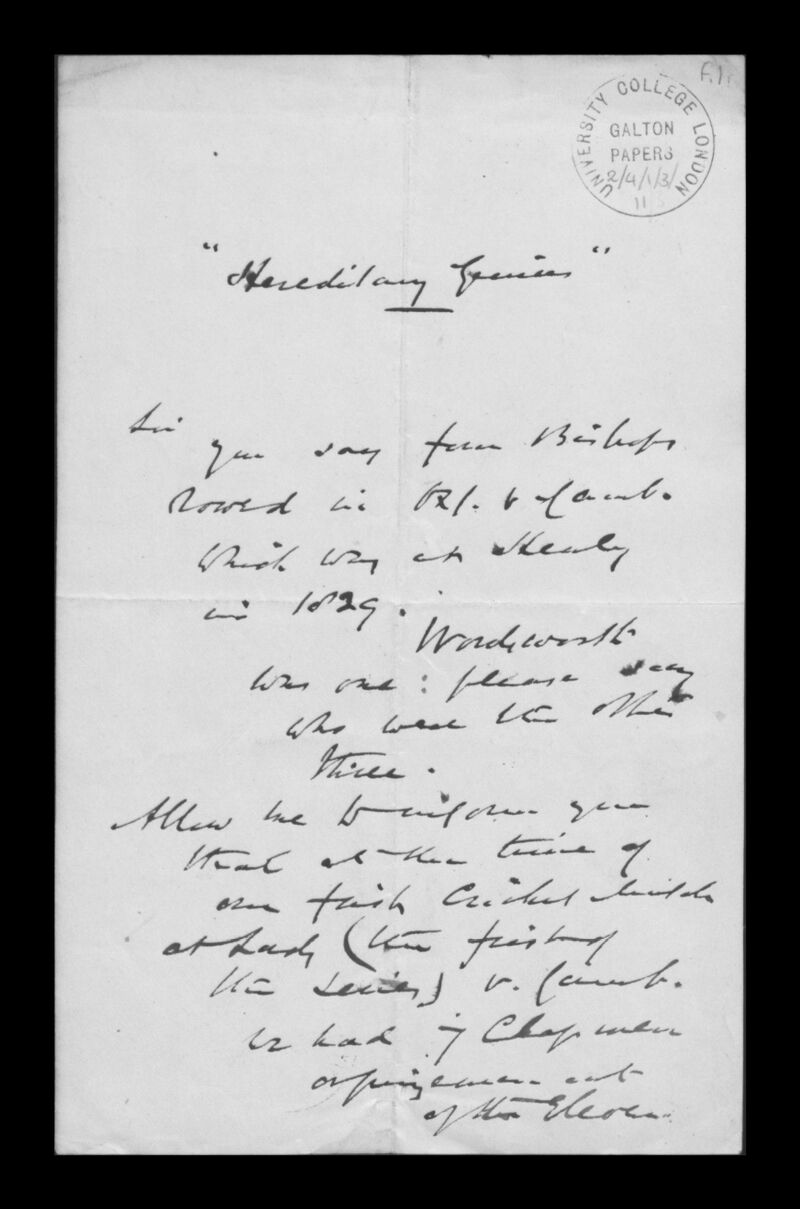 f.1r
UNIVERSITY COLLEGE LONDON
GALTON
PAPERS
2/4/1/3/
11
"Hereditary Genius"
Sir
you say four Bishops
rowed in Oxf. v Camb.
which was at Henley
in 1829.
Wordsworth
was one: please say
who were the other
three.
Allow me to inform you
that at the time of
our first Cricket Match
at Lords (the first of
the series) v. Camb.
we had 7 Clergymen
out
of the Eleven.